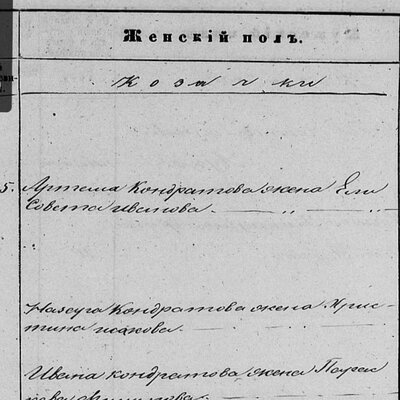 Женскій полъ.
Козачки
5. Артема Кондратова жена Ели
Совета иванова.
Кондратова жена Хрис-
тина исакова.
Ивана кондратова жена Парас